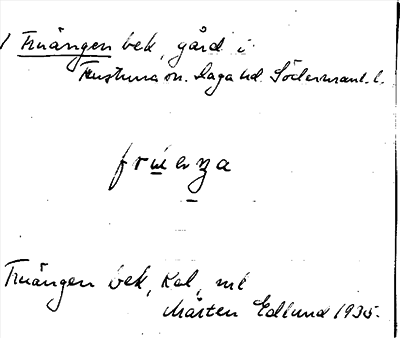 1 Fruängen bek, gård i
Frustuna sn. Daga hd. Södermanl. l.
fruɩeŋa
Fruängen bek, Kal, ml
Mårten Edlund 1935.